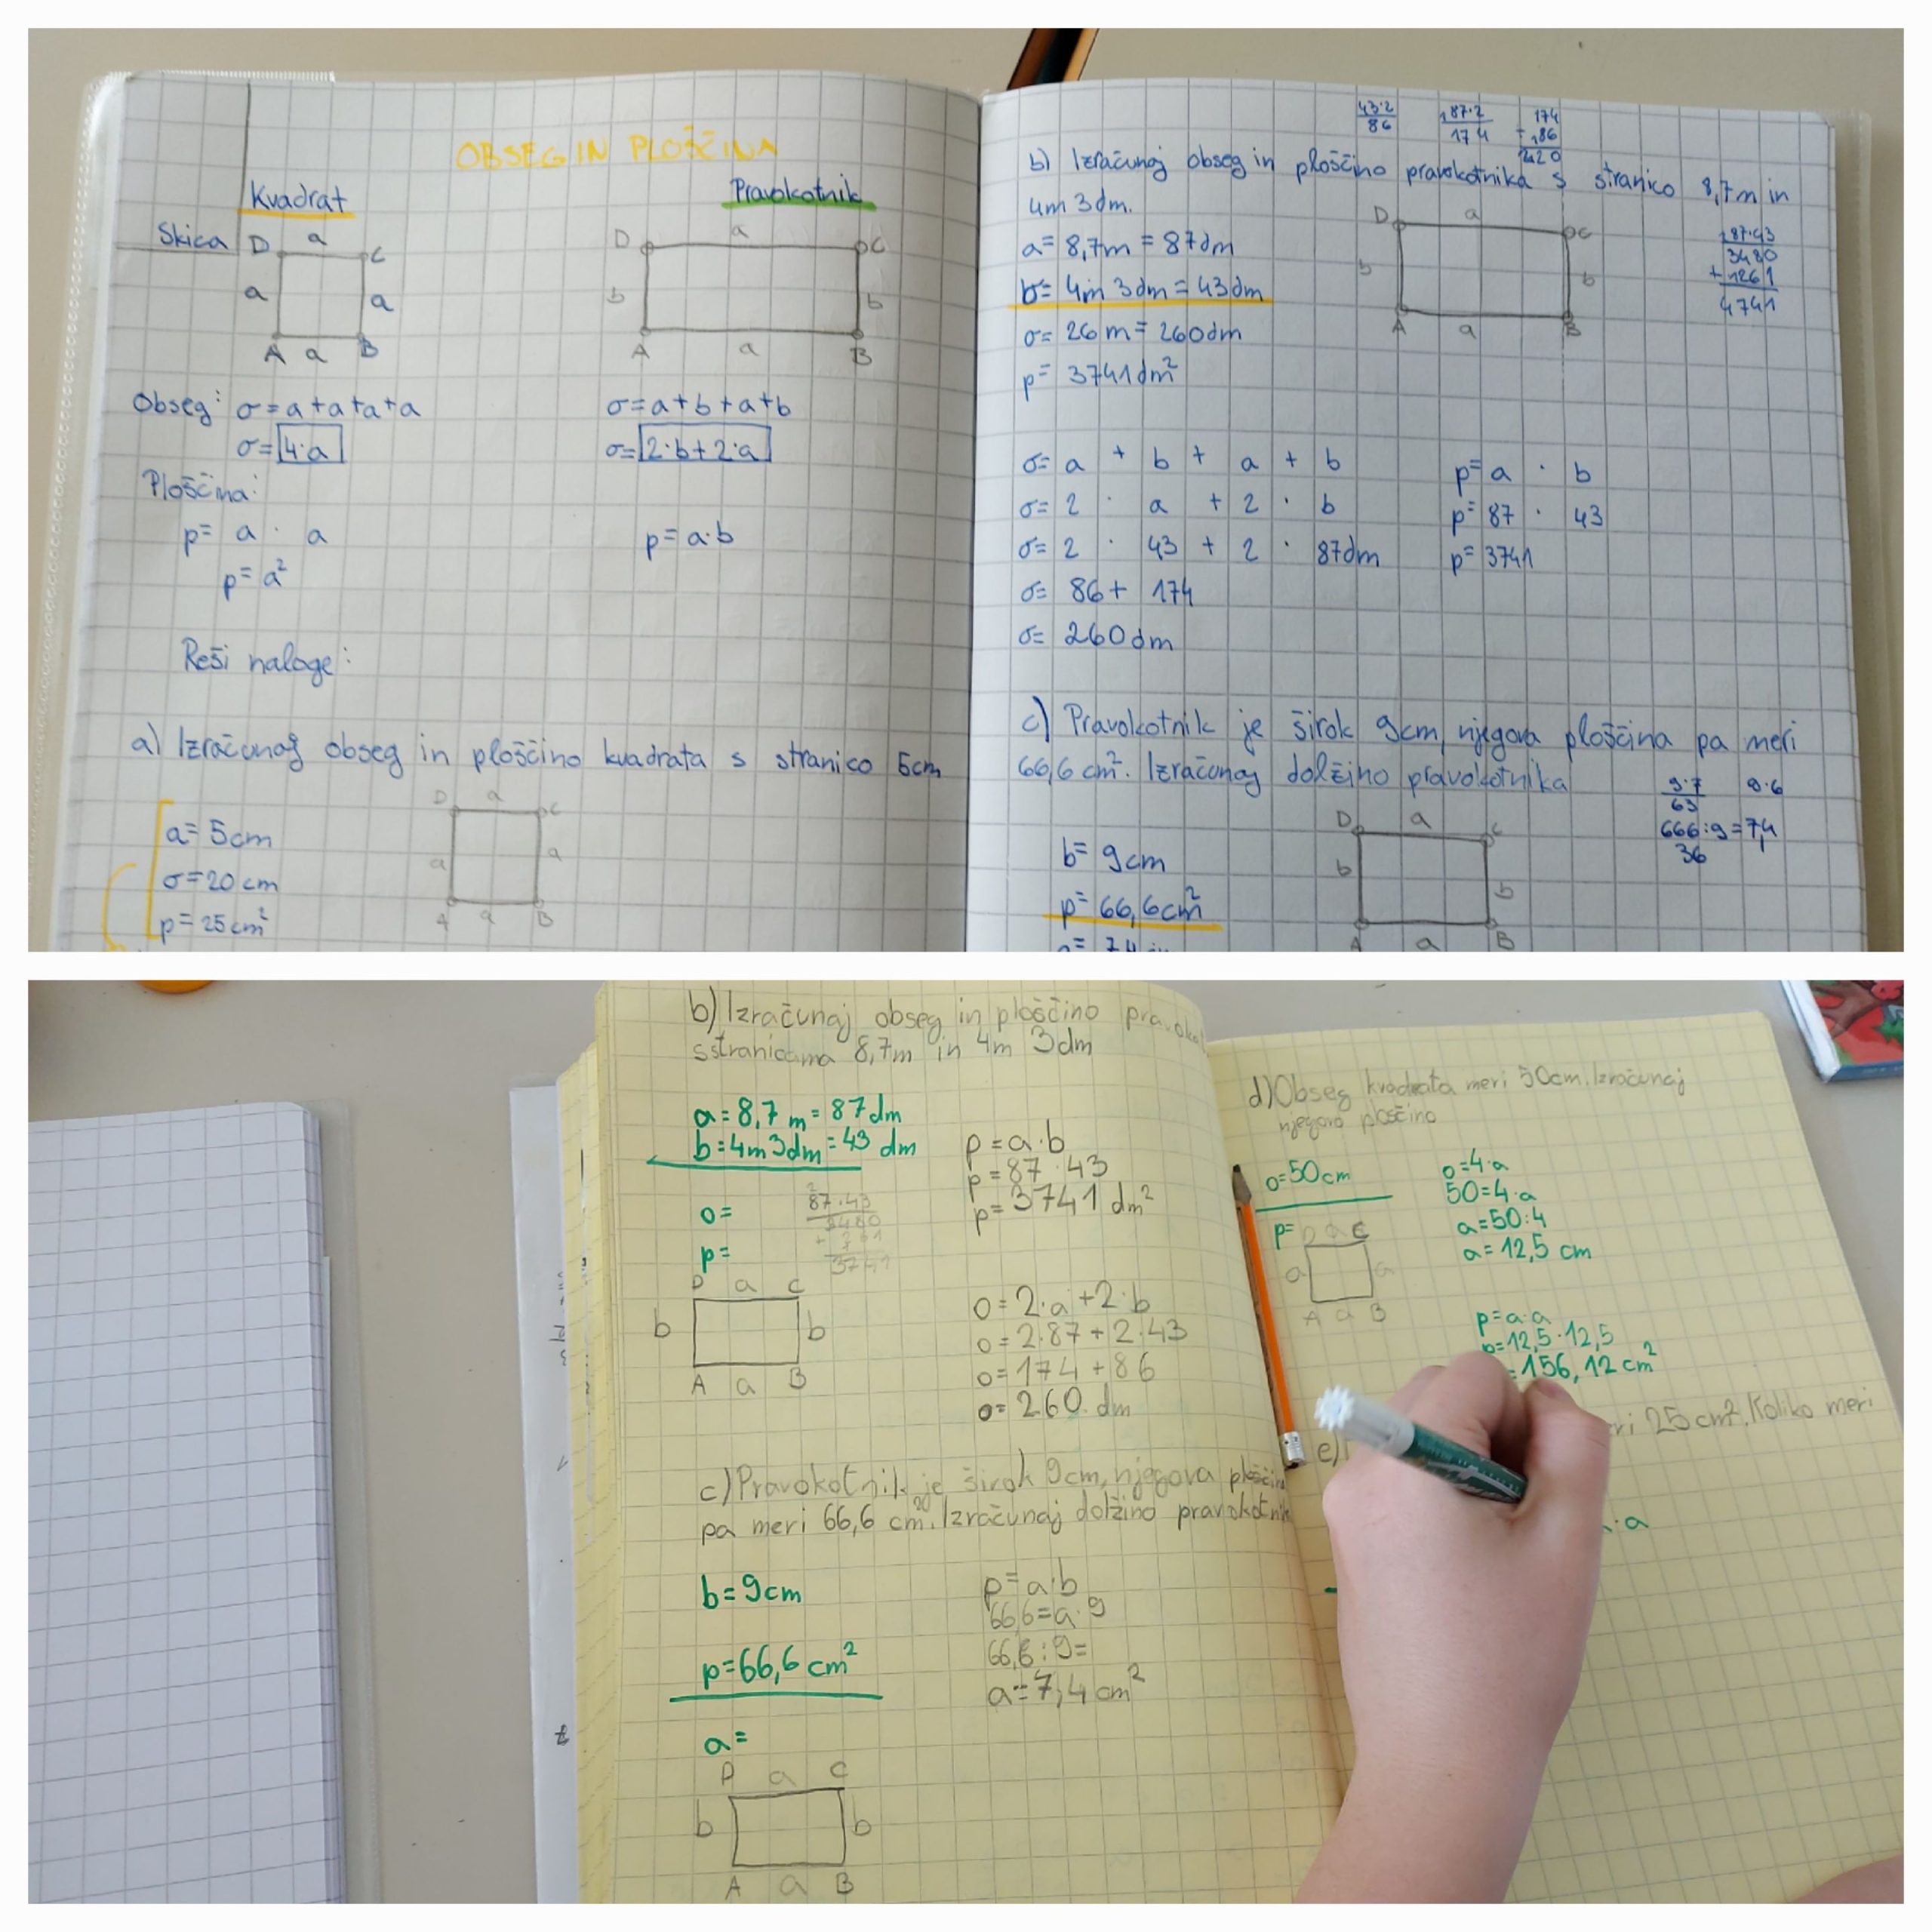 OBSEG IN PLOŠČINA
Kvadrat
Pravokotnik
Skica
D a C
a a
A a B
D a C
b b
A a B
Obseg: o=a+a+a+a
o=4·a
o=a+b+a+b
o=2·b+2·a
Ploščina:
p= a · a
p=a²
p=a·b
Reši naloge:
a) Izračunaj obseg in ploščino kvadrata s stranico 5cm
a=5cm
o=20cm
p=25cm²
D a C
a a
A a B
43·2
86
87·2
174
174
+186
b) Izračunaj obseg in ploščino pravokotnika s stranico 8,7m in
4m 3dm.
a= 8,7m = 87dm
b= 4m 3dm = 43dm
o= 26m = 260dm
p= 3741dm²
D a C
b b
A a B
87·43
3480
4741
o= a + b + a + b
o= 2 · a + 2 · b
o= 2 · 43 + 2 · 87dm
o= 86+ 174
o= 260dm
p= a · b
p= 87 · 43
p= 3741
c) Pravokotnik je širok 9cm, njegova ploščina pa meri
66,6 cm². Izračunaj dolžino pravokotnika
9·7
63
666:9=7,4
36
b= 9cm
p= 66,6cm²
D a C
b b
A a B
b) Izračunaj obseg in ploščino
s stranicama 8,7m in 4m 3dm
a=8,7m=87dm
b=4m3dm=43 dm
o=
p=
87·43
3741
D a C
b b
A a B
p=a·b
p=87·43
p=3741 dm²
o=2·a+2·b
o=2·87+2·43
o=174+86
o=260 dm
c) Pravokotnik je širok 9cm, njegova
pa meri 66,6 cm². Izračunaj dolžino
b=9cm
p=66,6 cm²
a=
D a C
b b
A a B
p=a·b
66,6=a·9
66,6:9=
a=7,4 cm²
d) Obseg kvadrata meri 50cm. Izračunaj
njegovo ploščino
o=50cm
p=
D a C
a a
A a B
o=4·a
50=4·a
a=50:4
a=12,5 cm
p=a·a
p=12,5·12,5
=156,12 cm²
e)
25 cm². Koliko meri
·a